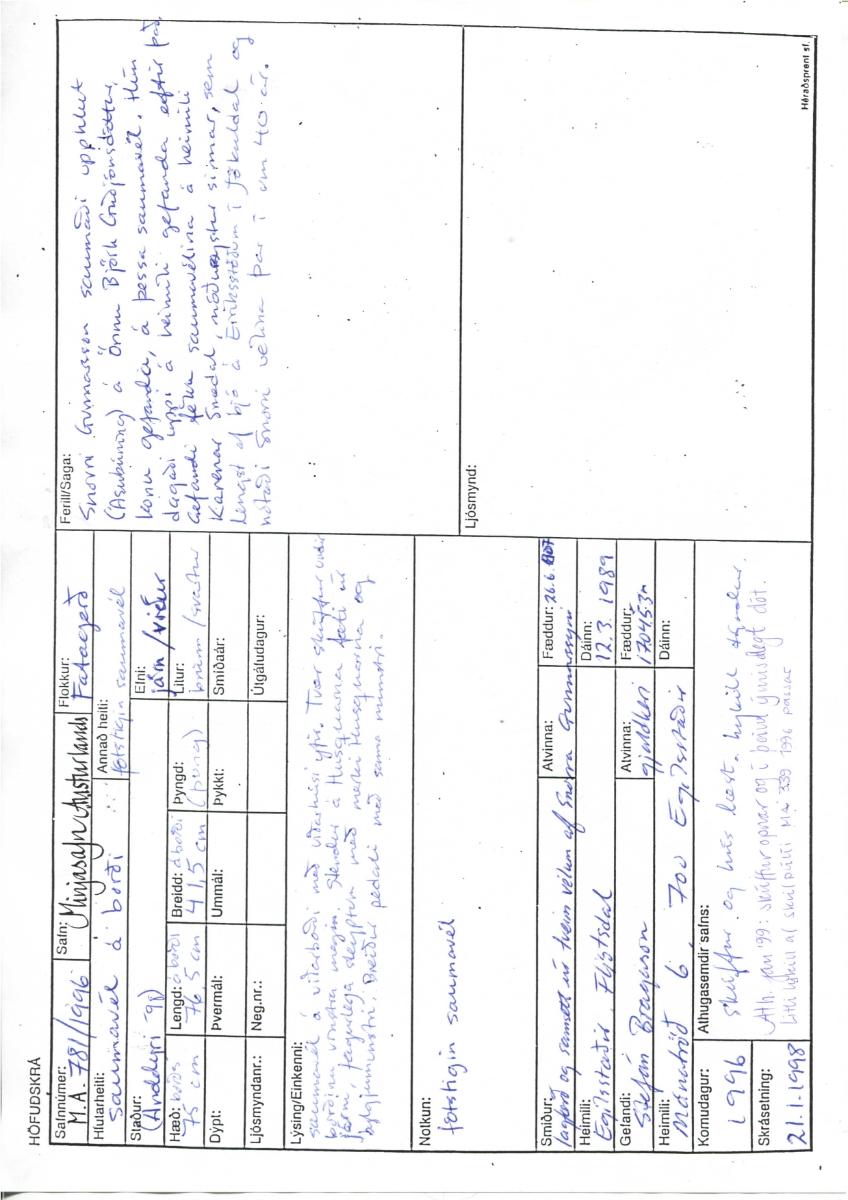 HÖFUÐSKRÁ
Safnnúmer: M.A. 781/1996
Safn: Minjasafn Austurlands
Flokkur: Fatagerð
Hlutarheiti: saumavél á borði
Annað heiti: fótstigin saumavél
Staður: (Anddyri 98)
Efni: járn/viður
Hæð: borðs 75 cm
Lengd: á borði 76,5 cm
Breidd: á borði 41,5 cm
Þyngd: (þung)
Litur: brúnn/svartur
Dýpt:
Þvermál:
Ummál:
Þykkt:
Smíðaár:
Ljósmyndanr.:
Neg.nr.:
Útgáfudagur:
Lýsing/Einkenni:
saumavél á viðarborði með viðarhúsi yfir. Tvær skúffur undir
borðinu vinstra megin. Stendur á Husqvarna fæti úr
járni, fagurlega skreyttum með merki Husqvarna og
bylgjumunstri. Breiður pedali með sama munstri.
Notkun:
fótstigin saumavél
Smiður:
lagfærð og samsett úr tveim vélum af Snorra Gunnarssyni
Atvinna:
Fæddur: 26.6.1907
Heimili:
Egilsstaðir, Fljótsdal
Dáinn:
12.3. 1989
Gefandi:
Stefán Bragason
Atvinna:
gjaldkeri
Fæddur:
170453
Heimili:
Mánatröð 6, 700 Egilsstaðir
Dáinn:
Komudagur:
1996
Skrásetning:
21.1.1998
Athugasemdir safns:
skúffur og hús læst. lykill týndur.
Ath. jan '99: skúffur opnar og í þeim ýmislegt dót.
Lítill lykill af skúlptúr MA 339 1996 passar
Ferill/Saga:
Snorri Gunnarsson saumaði upphlut
(Ásubúning) á Önnu Björk Guðjónsdóttur,
konu gefanda, á þessa saumavél. Hún
dagaði uppi á heimili gefanda eftir það.
Gefandi fékk saumavélina á heimili
Karenar Smedal, móðursystur sinnar, sem
lengst af bjó á Eiríksstöðum í Jökuldal og
notaði Snorri vélina þar í um 40 ár.
Ljósmynd:
Héraðsprent sf.